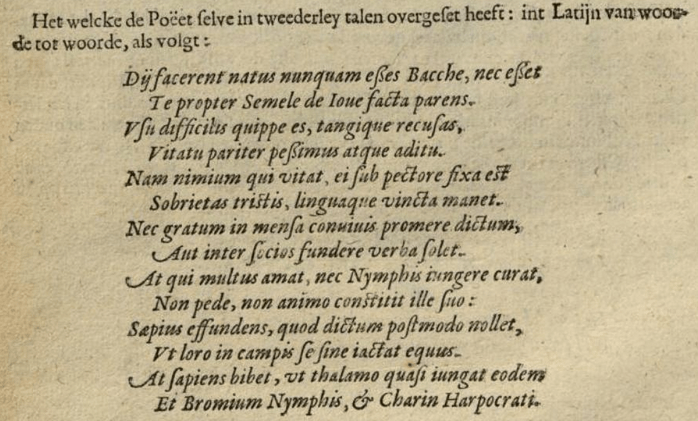 Het welcke de Poëet ſelve in tweederley talen overgeſet heeft: int Latijn van woor-
de tot woorde, als volgt:
Dij facerent natus nunquam eſſes Bacche, nec eſſet
Te propter Semele de Ioue facta parens.
Vſu difficilis quippe es, tangique recuſas,
Vitatu pariter peſſimus atque aditu.
Nam nimium qui vitat, ei ſub pectore fixa eſt
Sobrietas triſtis, linguaque vincta manet.
Nec gratum in menſa conuiuis promere dictum,
Aut inter ſocios fundere verba ſolet.
At qui multus amat, nec Nymphis iungere curat,
Non pede, non animo conſtitit ille ſuo:
Sæpius effundens, quod dictum poſtmodo nollet,
Vt loro in campis ſe ſine iactat equus.
At ſapiens bibet, vt thalamo quaſi iungat eodem
Et Bromium Nymphis, & Charin Harpocrati.